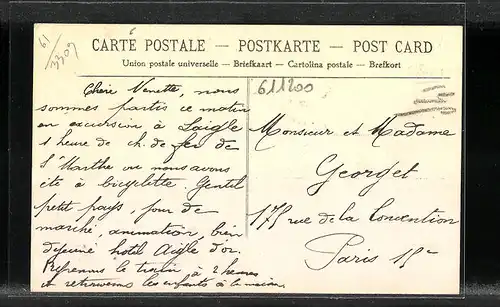 61
3309
6
CARTE POSTALE — POSTKARTE — POST CARD
Union postale universelle — Briefkaart — Cartolina postale — Brefkort
611200
Chérie Nénette, nous
sommes partis ce matin
en excursion à Laigle
1 heure de ch. de fer de
Ste Marthe où nous avons
été à bicyclette. Gentil
petit pays, jour de
marché, animation, bien
déjeuné hotel Aigle d'or.
Reprenons le train à 2 heures
et retrouverons les enfants à la maison.
Monsieur et Madame
Georget
175 rue de la Convention
Paris 15e